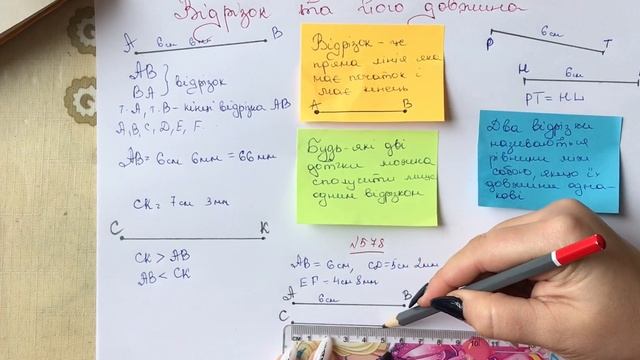 Відрізок та його довжина
A 6см 6мм B
AB
BA } відрізок
т. A, т. B - кінці відрізка AB
A, B, C, D, E, F.
AB = 6см 6мм = 66мм
CK = 7см 3мм
C K
CK > AB
AB < CK
Відрізок - це
пряма лінія яка
має початок і
має кінець
A B
Будь-які дві
точки можна
сполучити лише
одним відрізком
P 6см T
H
PT = HL
Два відрізки
називаються
рівними між
собою, якщо їх
довжини одна-
кові
№578
AB = 6см, CD = 5см 2мм
EF - 4см 8мм
A 6см B
C